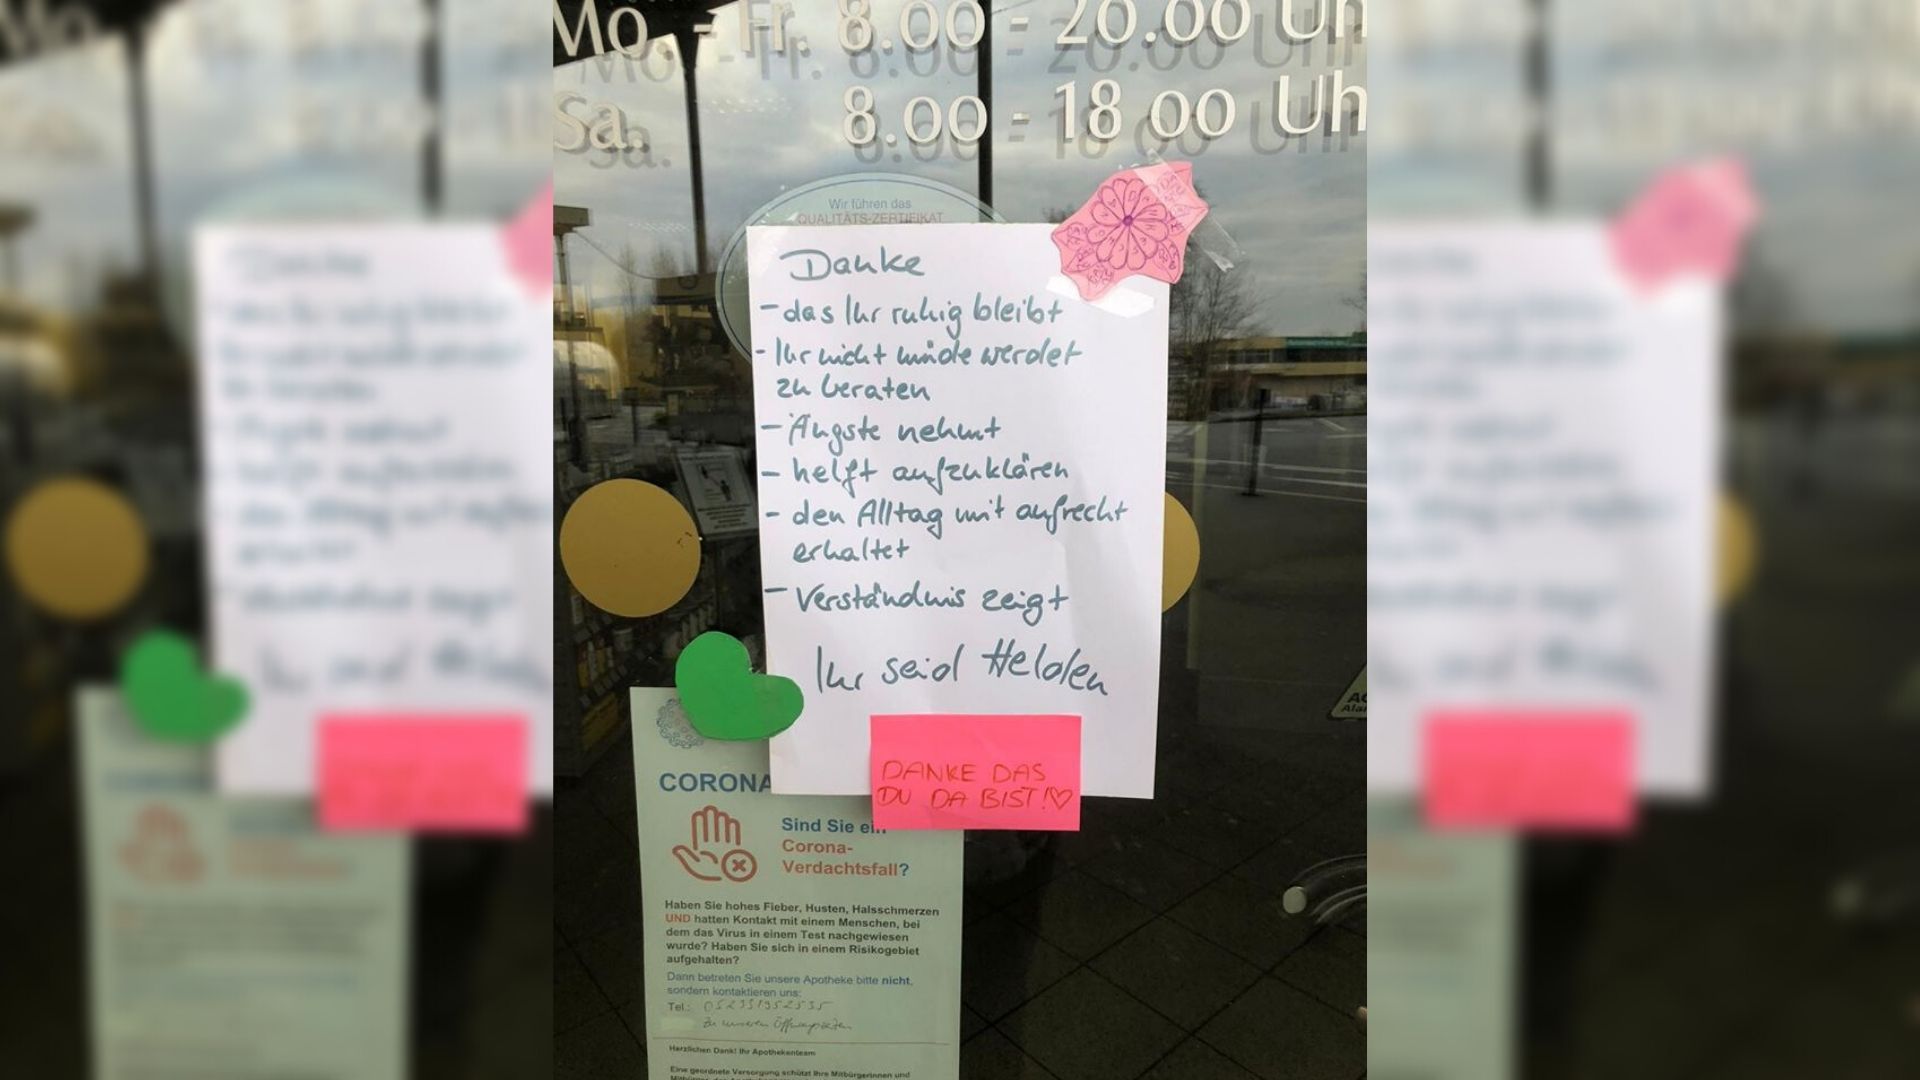 Mo. - Fr. 8.00 - 20.00 Uh
Sa. 8.00 - 18 00 Uh
Wir führen das
QUALITÄTS-ZERTIFIKAT
Danke
- das Ihr ruhig bleibt
- Ihr nicht müde werdet
zu beraten
- Ängste nehmt
- helft aufzuklären
- den Alltag mit aufrecht
erhaltet
- Verständnis zeigt
Ihr seid Helden
DANKE DAS
DU DA BIST!♡
CORONA
Sind Sie ein
Corona-
Verdachtsfall?
Haben Sie hohes Fieber, Husten, Halsschmerzen
UND hatten Kontakt mit einem Menschen, bei
dem das Virus in einem Test nachgewiesen
wurde? Haben Sie sich in einem Risikogebiet
aufgehalten?
Dann betreten Sie unsere Apotheke bitte nicht,
sondern kontaktieren uns:
Tel.:
zu unseren Öffnungszeiten
Herzlichen Dank! Ihr Apothekenteam
Eine geordnete Versorgung schützt Ihre Mitbürgerinnen und